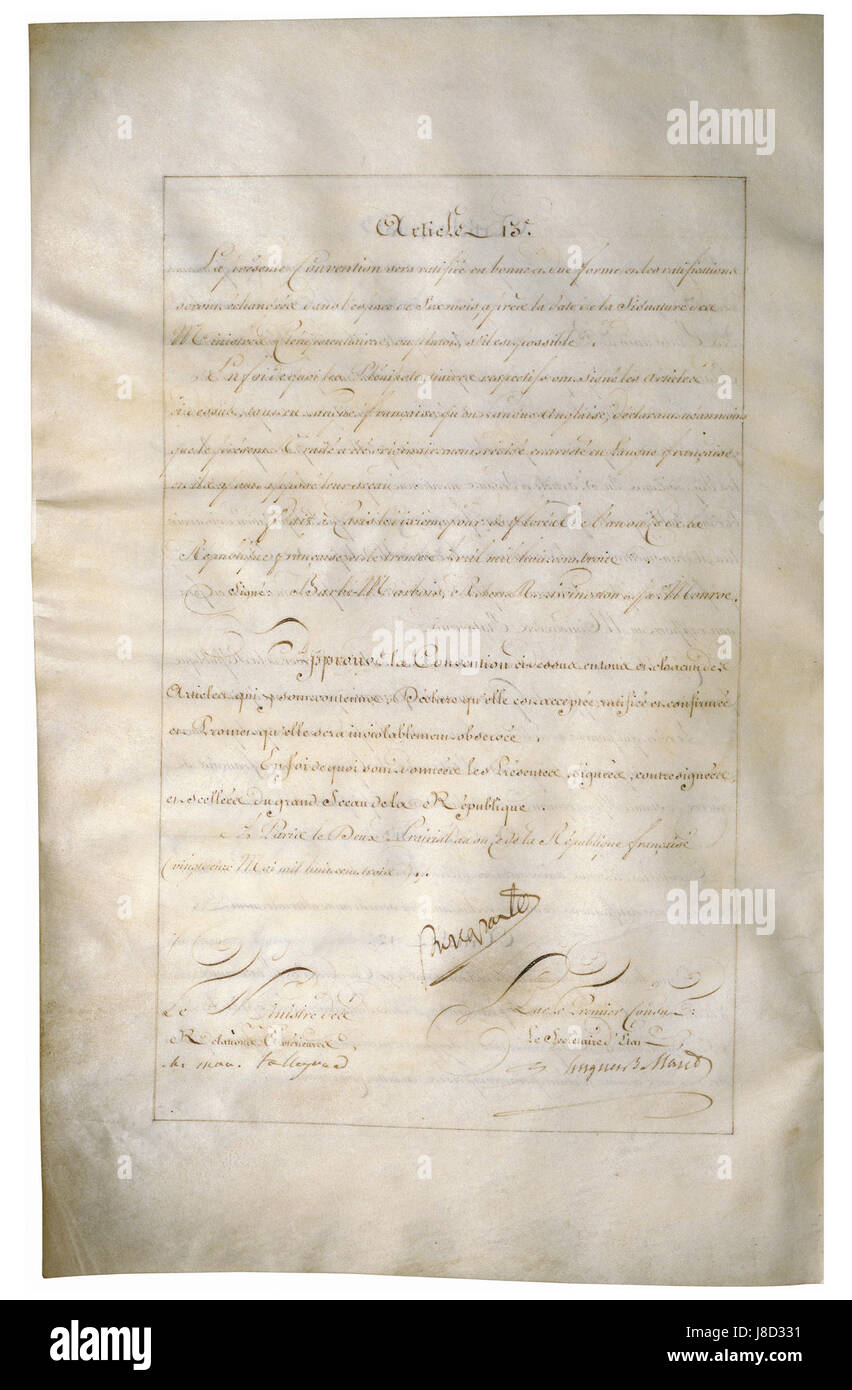 Article 13e.
La présente Convention sera ratifiée en bonne et due forme et les ratifications
seront échangées dans l'espace de Six mois, après la date de la Signature des
Ministres Plénipotentiaires, ou plutôt, s'il est possible.
En foi de quoi les Plénipotentiaires respectifs ont Signé les Articles
ci dessus, tant en langue française, qu'en langue Anglaise, déclarant néanmoins
que le présent Traité a été originairement rédigé et arrêté en Langue française
et ils y ont apposé leur Sceau.
Fait à Paris le dixième jour de floréal de l'an onze de la
République française et le trente Avril mil huit cent trois.
Signé: Barbé-Marbois, Robert R. Livingston et Jas. Monroe.
Approuve la Convention ci dessus en tous et chacun des
Articles qui y sont contenus, Déclare qu'elle est acceptée, ratifiée et confirmée
et Promet qu'elle sera inviolablement observée.
En foi de quoi sont données les Présentes, signées, contresignées
et scellées du grand Sceau de la République.
à Paris le Deux Prairial an onze de la République française
(vingt deux Mai mil huit cent trois).
Bonaparte
Le Ministre des
Relations Extérieures
ch. mau. talleyrand
Par le Premier Consul:
Le Secrétaire d'Etat
hugues B. Maret
alamy
a
alamy
Image ID: J8D331
www.alamy.com